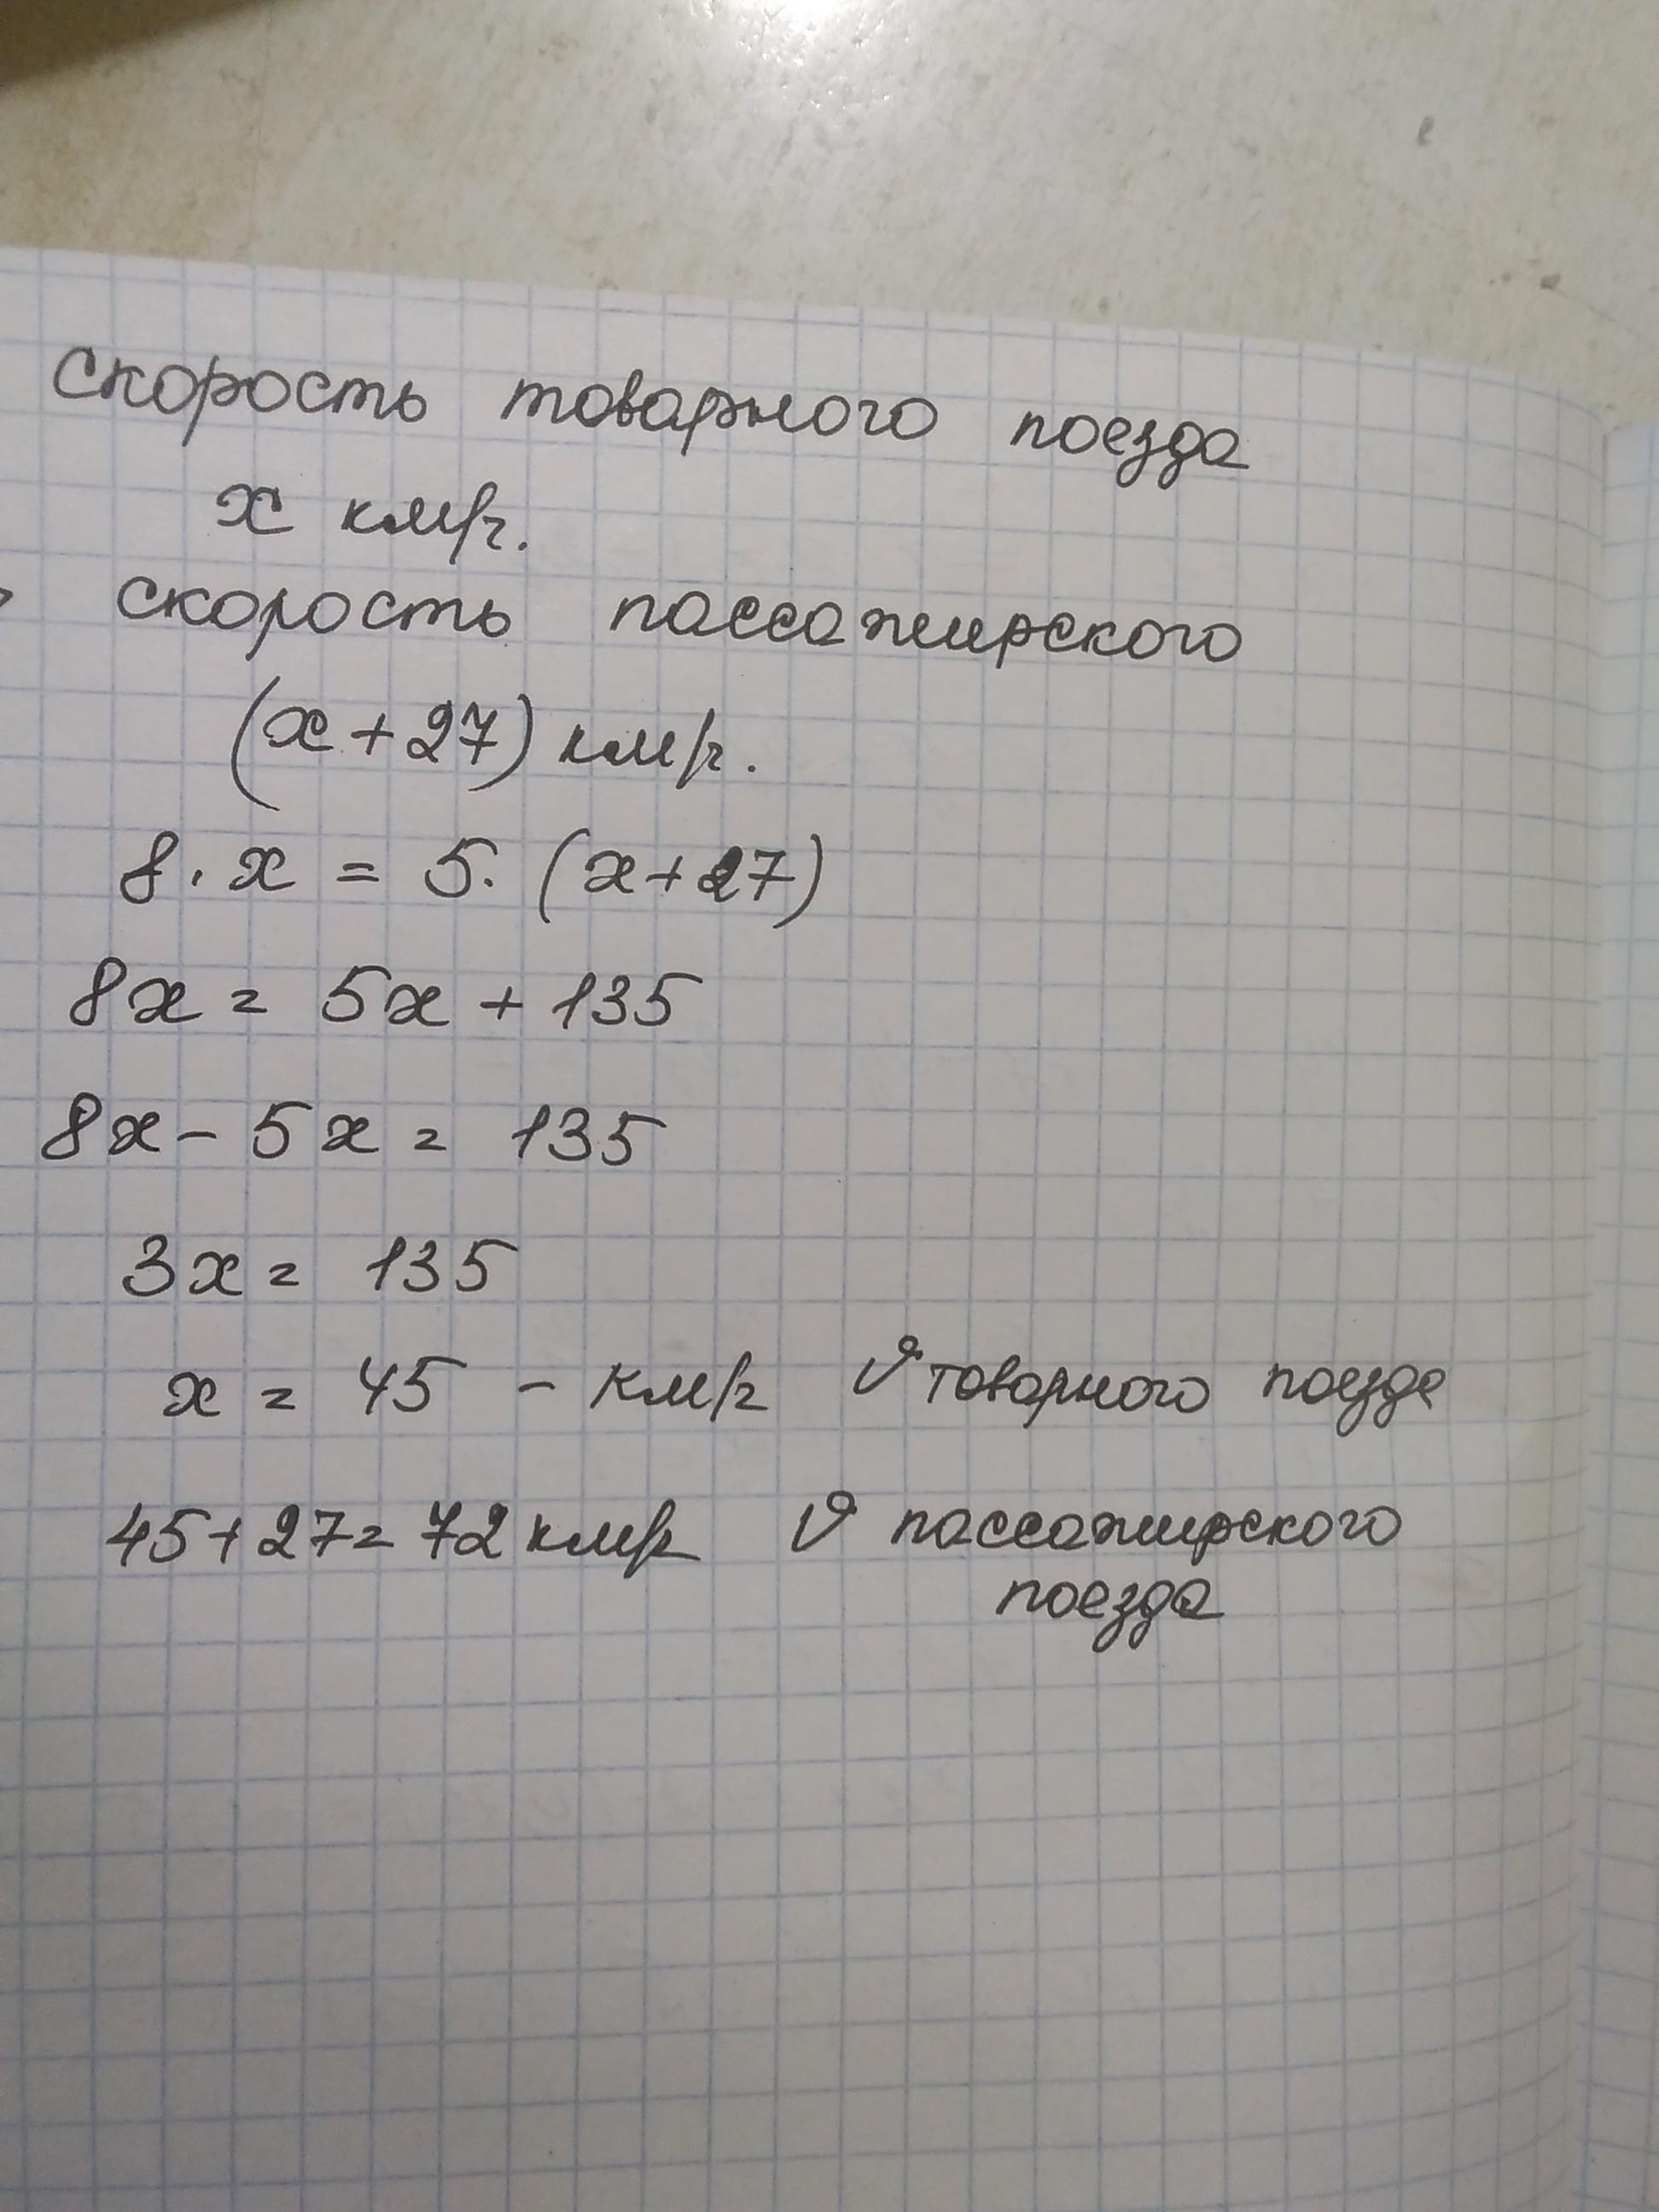 скорость товарного поезда
х км/ч.
скорость пассажирского
(х + 27) км/ч.
8 · х = 5 · (х + 27)
8х = 5х + 135
8х - 5х = 135
3х = 135
х = 45 - км/ч v товарного поезда
45 + 27 = 72 км/ч v пассажирского
поезда